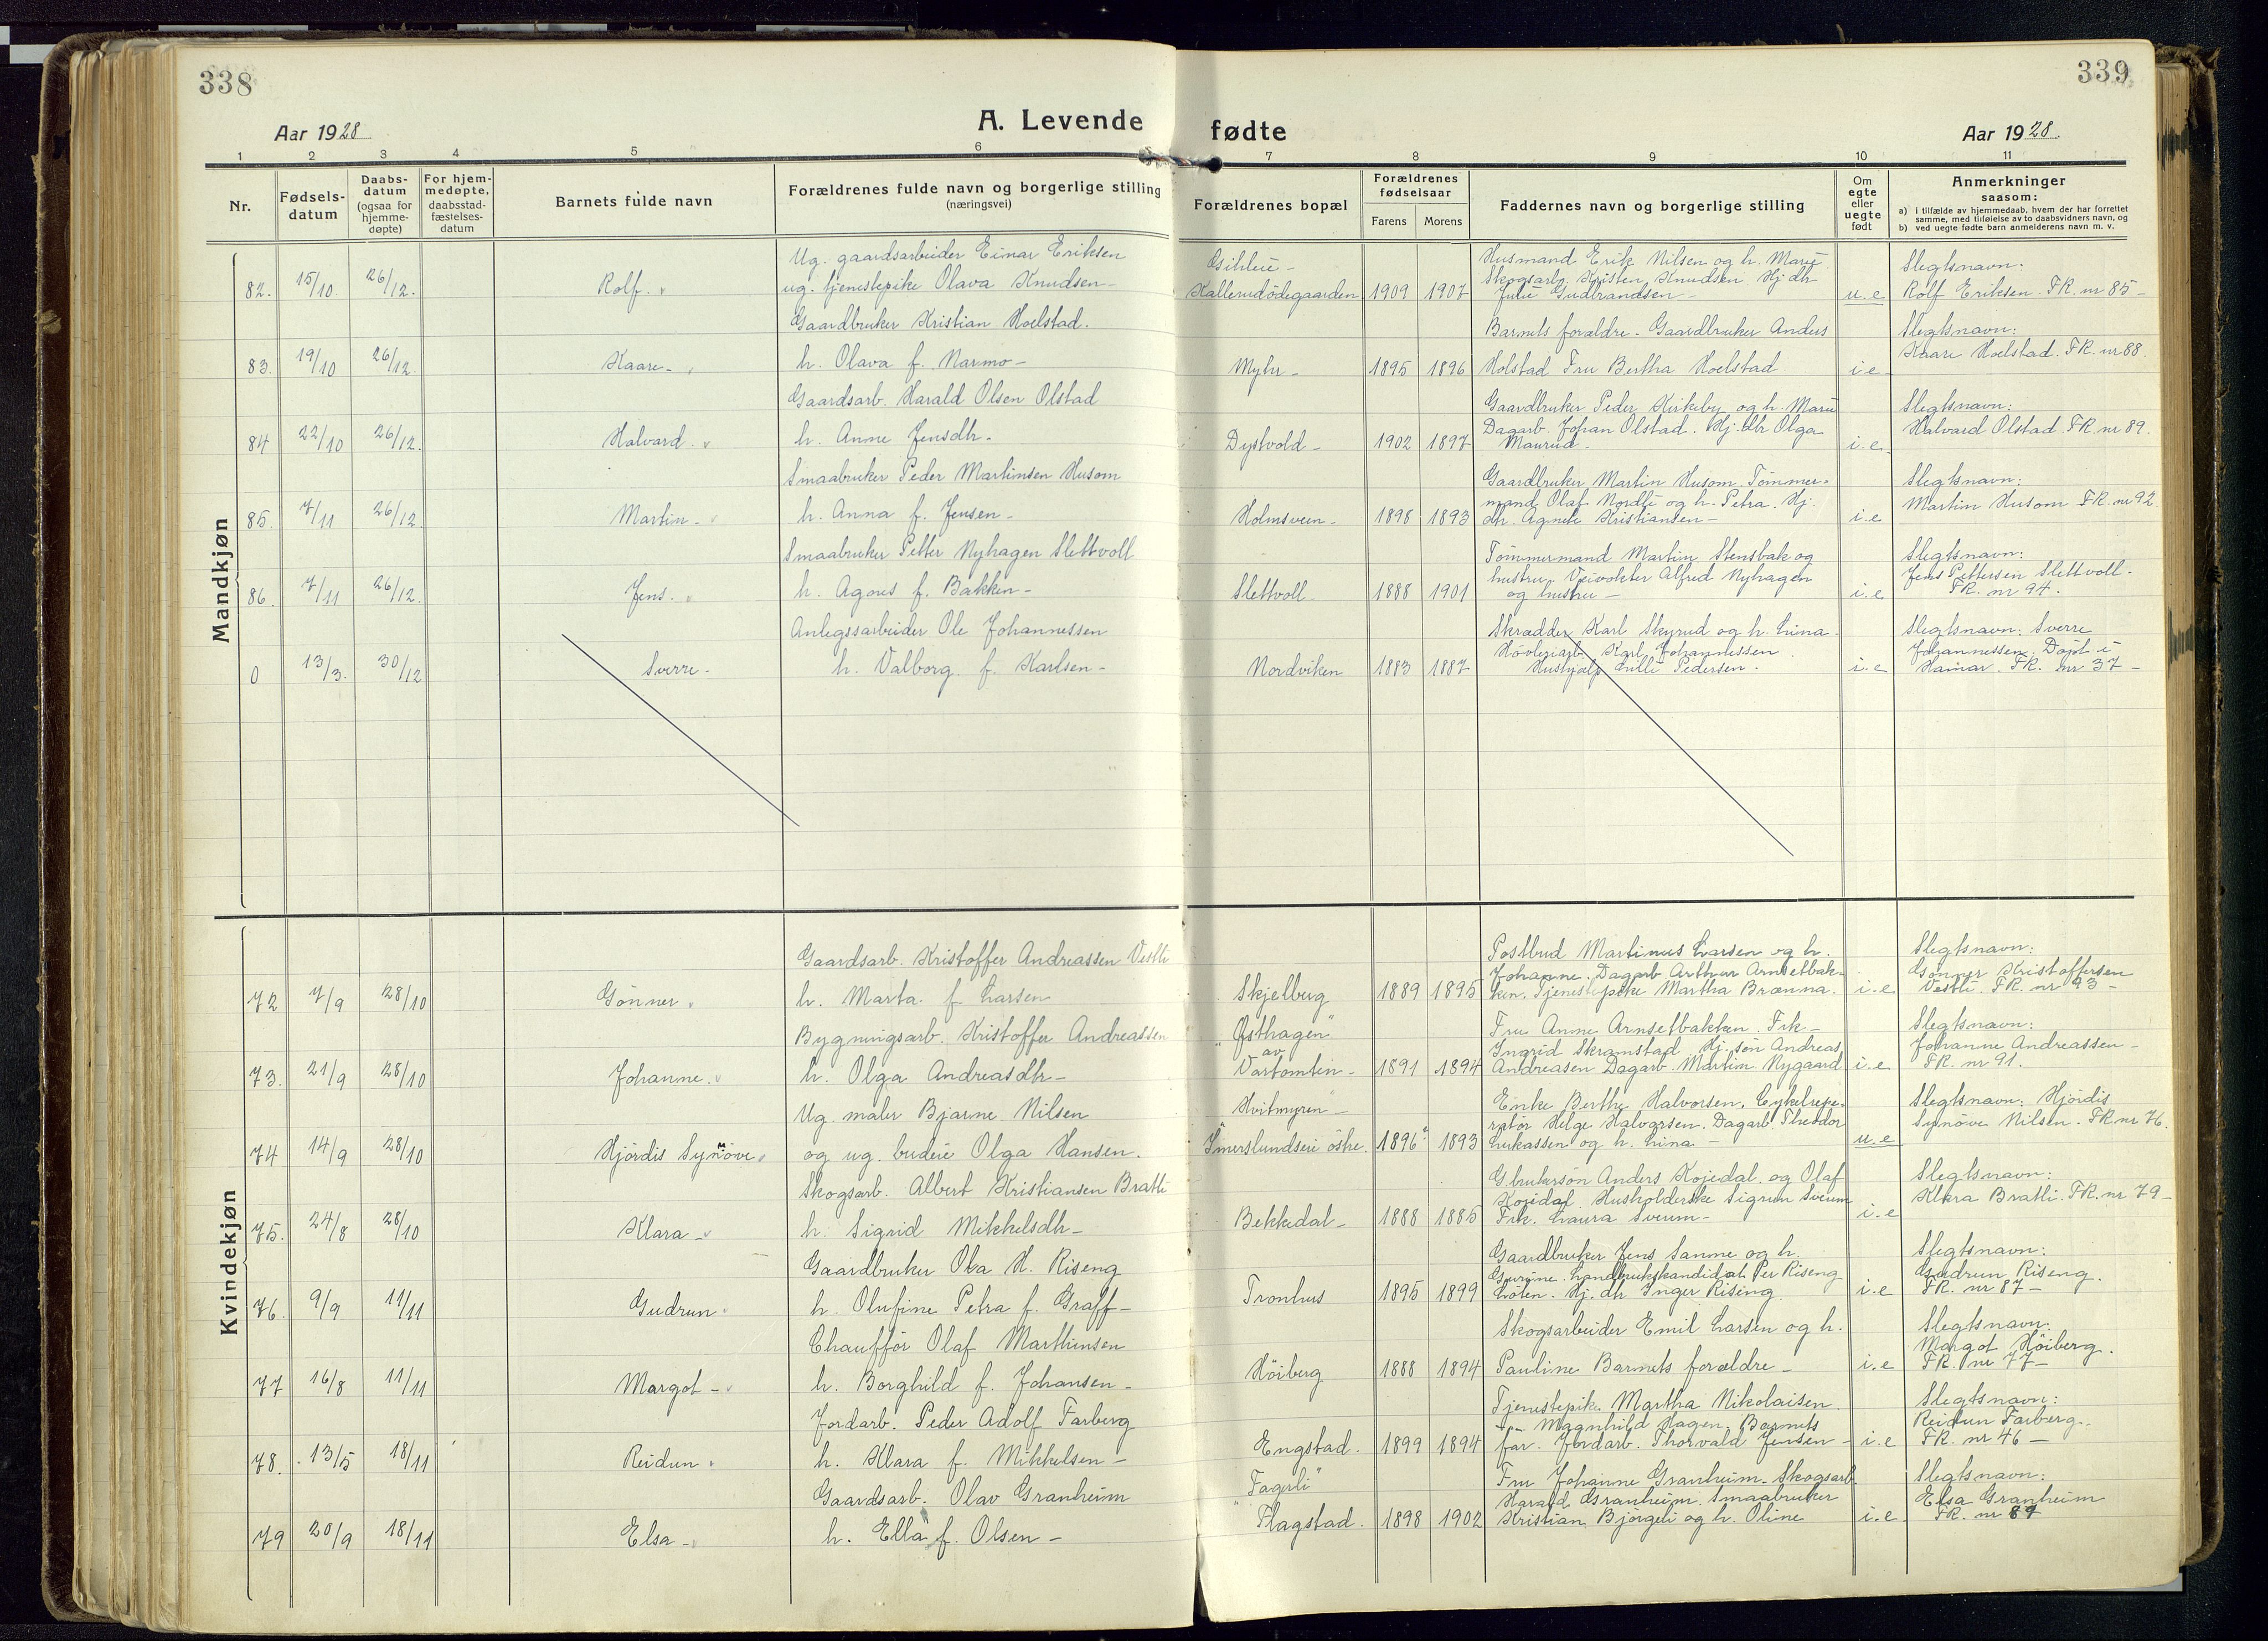 338
339
A. Levende fødte
Aar 1928
Aar 1928.
1 2 3 4 5 6 7 8 9 10 11
Nr.
Fødsels-
datum
Daabs-
datum
(ogsaa for
hjemme-
døpte)
For hjem-
medøpte,
daabsstad-
fæstelses-
datum
Barnets fulde navn
Forældrenes fulde navn og borgerlige stilling
(næringsvei)
Forældrenes bopæl
Forældrenes
fødselsaar
Farens Morens
Faddernes navn og borgerlige stilling
Om
egte
eller
uegte
født
Anmerkninger
saasom:
a) i tilfælde av hjemmedaab, hvem der har forrettet
samme, med tilføielse av to daabsvidners navn, og
b) ved uegte fødte barn anmelderens navn m. v.
Mandkjøn
82. 15/10. 26/12. Rolf.
Ug. gaardsarbeider Einar Eriksen
ug. tjenestepike Olava Knudsen-
Kallerudödegaarden 1909 1907
Husmand Erik Nilsen og h. Marie
Skogsarb. Kristen Knudsen Hj dtr
Julie Gudbrandsen-
u.e
Slegtsnavn:
Rolf Eriksen. FR. nr 85-
83. 19/10 26/12. Kaare-
Gaardbruker Kristian Hoelstad.
h. Olava f. Narmo-
Myhr- 1895 1896
Barnets forældre- Gaardbruker Anders
Holstad Fru Bertha Hoelstad
i.e
Slegtsnavn:
Kaare Hoelstad. FR. nr 88.
84 22/10 26/12. Halvard.
Gaardsarb. Harald Olsen Olstad
h. Anne Jensdtr-
Dystvold- 1902 1897
Gaardbruker Peder Kirkeby og h. Marie
Dagarb. Johan Olstad. Hj. dtr Olga
Maurud-
i.e.
Slegtsnavn:
Halvard Olstad. FR. nr 89.
85. 7/11 26/12. Martin-
Smaabruker Peder Martinsen Husom
h. Anna f. Jensen-
Holmsveen- 1898 1893
Gaardbruker Martin Husom. Tömmer-
mand Olaf Nordli og h. Petra. Hj.
dtr. Agnete Kristiansen-
i.e
Slegtsnavn:
Martin Husom FR. nr 92.
86. 7/11 26/12. Jens.
Smaabruker Petter Nyhagen Slettvoll
h. Agnes f. Bakken-
Slettvoll 1888 1901
Tömmermand Martin Stensbak og
hustru. Veivokter Alfred Nyhagen
og hustru-
i.e.
Slegtsnavn:
Jens Pettersen Slettvoll-
FR. nr 94.
0 13/3. 30/12 Sverre-
Anlegsarbeider Ole Johannessen
h. Valborg f. Karlsen-
Nordviken 1883 1887
Skrædder Karl Skyrud og h. Lina
Hövleriarb. Karl Johannessen
Hushjælp Lilli Pedersen.
i.e
Slegtsnavn: Sverre
Johannessen. Döpt i
Hamar. FR. nr 37-
Kvindekjøn
72 7/9 28/10 Gönner
Gaardsarb. Kristoffer Andreassen Vestli
h. Marta f Larsen
Skjelberg 1889 1895
Postbud Martinus Larsen og h.
Johanne. Dagarb Arthur Arnsetbak-
ken. Tjenestepike Martha Brænna.
i.e
Slegtsnavn:
Gönner Kristoffersen
Vestli. FR. nr 93-
73. 21/9 28/10 Johanne.
Bygningsarb. Kristoffer Andreassen
h. Olga Andreasdtr-
"Østhagen"
av
Vartomten- 1891 1894
Fru Anne Arnsetbakken. Frk-
Ingrid Skramstad Hj. sön Andreas
Andreasen Dagarb. Martin Nygaard
i.e
Slegtsnavn:
Johanne Andreassen-
FR. nr 91.
74 14/9 28/10 Hjördis Synnöve
Ug. maler Bjarne Nilsen
og ug. budeie Olga Hansen.
Hvitmyren"-
Imerslundseie östre. 1896 1893
Enke Berthe Halvorsen. Cykelrepe-
ratör Helge Halvorsen. Dagarb. Theodor
Lukassen og h. Lina-
u.e
Slegtsnavn: Hjördis
Synöve Nilsen. FR nr 76.
75. 24/8 28/10 Klara-
Skogsarb. Albert Kristiansen Bratli
h. Sigrid Mikkelsdtr-
Bekkedal- 1888 1885
Gbrukersön Anders Kojedal og Olaf
Kojedal. Husholderske Sigrun Sveum
Frk. Laura Sveum-
i.e
Slegtsnavn:
Klara Bratli. FR. nr 79-
76. 9/9 11/11 Gudrun
Gaardbruker Ola H. Riseng
h. Olufine Petra f. Graff-
Tronhus 1895 1899
Gaardbruker Jens Sanne og h.
Gurine. Landbrukskandidat Per Riseng
Löten. Hj. dtr Inger Riseng.
i.e
Slegtsnavn:
Gudrun Riseng.
FR. nr 87-
77 16/8 11/11 Margot-
Chaufför Olaf Marthinsen
h. Borghild f. Johansen-
Höiberg 1888 1894
Skogsarbeider Emil Larsen og h.
Pauline Barnets forældre-
i.e
Slegtsnavn:
Margot Höiberg.
FR. nr 77-
78. 13/5 18/11 Reidun
Jordarb. Peder Adolf Farberg
h. Klara f. Mikkelsen-
Engstad. 1899 1894
Tjenestepike Martha Nikolaisen.
Magnhild Hagen. Barnets
far. Jordarb. Thorvald Jensen-
i.e
Slegtsnavn:
Reidun Farberg.
FR. nr 46-
79 20/9 18/11 Elsa-
Gaardsarb. Olav Granheim
h. Ella f. Olsen-
"Fagerli"
Flagstad. 1898 1902
Fru Johanne Granheim. Skogsarb
Harald Granheim. Smaabruker
Kristian Bjørgeli og h. Oline
i.e
Slegtsnavn:
Elsa Granheim
FR. nr 84